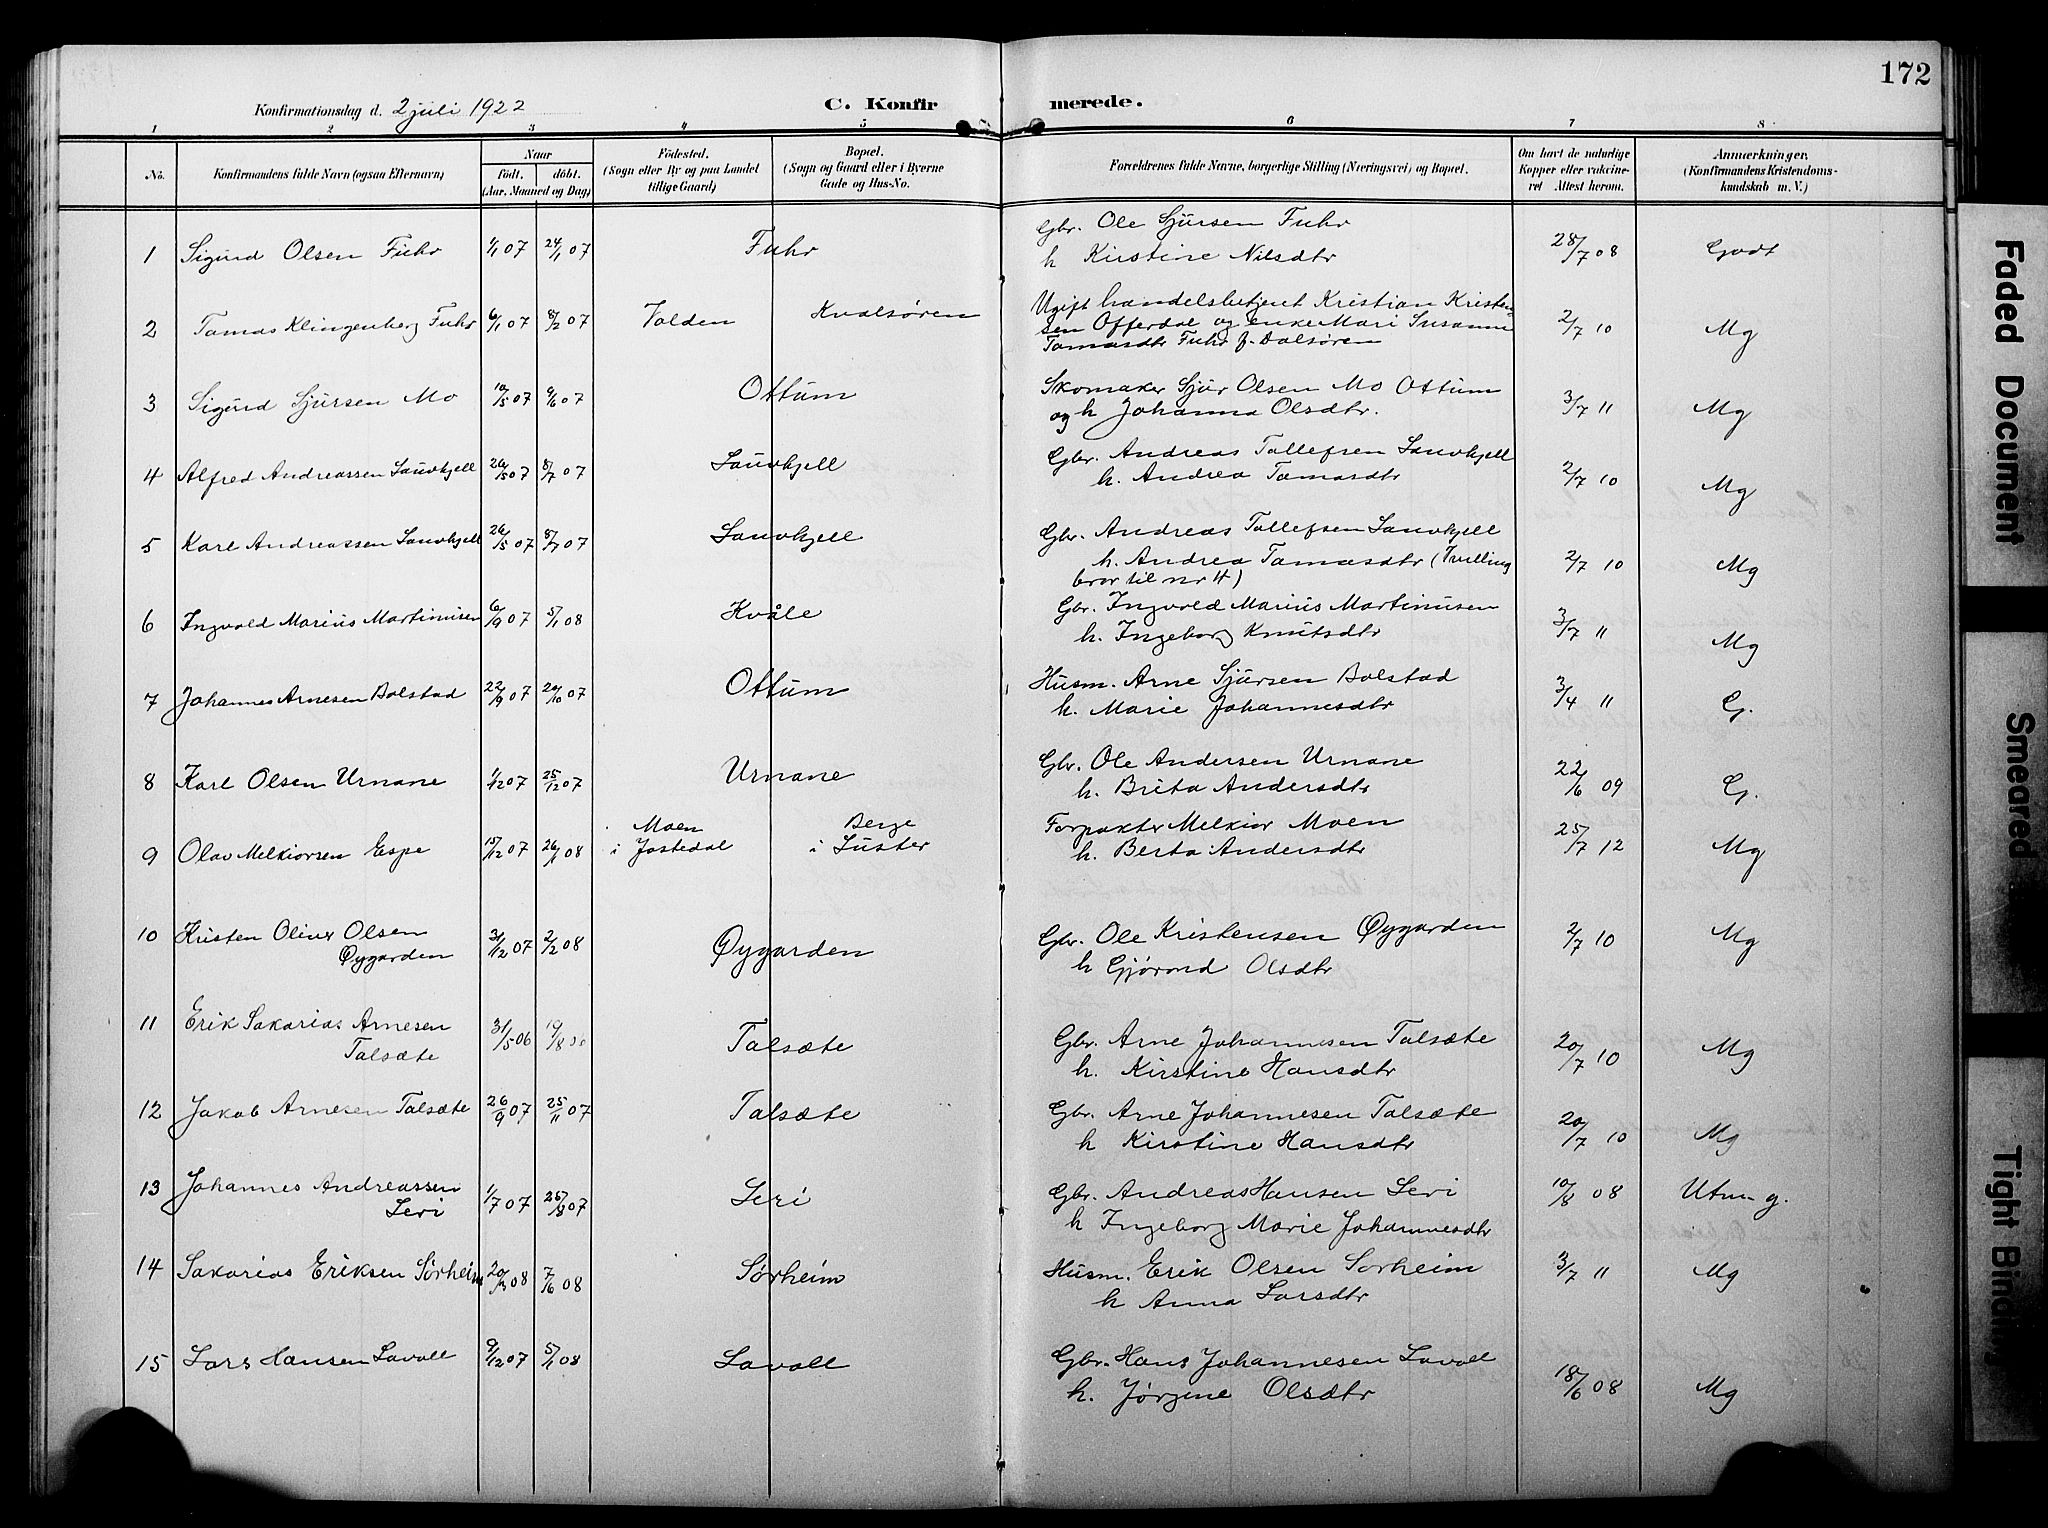 172
Konfirmationsdag d. 2 juli 1922
C. Konfirmerede.
1 2 3 4 5 6 7 8
No. Konfirmandens fulde Navn (ogsaa Efternavn) Naar født. døbt. (Aar, Maaned og Dag) Fødested. (Sogn eller By og paa Landet tillige Gaard) Bopæl. (Sogn og Gaard eller i Byerne Gade og Hus-No. Forældrenes fulde Navne, borgerlige Stilling (Næringsvei) og Bopæl. Om havt de naturlige Kopper eller vakcineret Attest herom. Anmærkninger, (Konfirmandens Kristendomskundskab m. V.)
1 Sigurd Olsen Fuhr 1/1 07 24/1 07 Fuhr Gbr. Ole Sjursen Fuhr 28/7 08 Godt
h Kirstine Nilsdtr
2 Tomas Klingenberg Fuhr 6/1 07 8/2 07 Volden Kvalsøren Ugift handelsbetjent Kristian Kristen- 2/7 10 Mg
sen Offerdal og enke Mari Susanne
Tomasdtr Fuhr f. Dalsøren
3 Sigurd Sjursen Mo 10/5 07 9/6 07 Ottum Skomaker Sjur Olsen Mo Ottum 3/7 11 Mg
og h Johanna Olsdtr.
4 Alfred Andreassen Lauvhjell 26/5 07 8/7 07 Lauvhjell Gbr. Andreas Tollefsen Lauvhjell 2/7 10 Mg
h. Andrea Tomasdtr
5 Karl Andreassen Lauvhjell 26/5 07 8/7 07 Lauvhjell Gbr. Andreas Tollefsen Lauvhjell 2/7 10 Mg
h. Andrea Tomasdtr (Tvilling
bror til nr 4)
6 Ingvald Marius Martinusen 6/9 07 5/1 08 Kvåle Gbr. Ingvold Marius Martinusen 3/7 11 Mg
h. Ingeborg Knutsdtr
7 Johannes Arnesen Bolstad 22/9 07 20/10 07 Ottum Husm. Arne Sjursen Bolstad 3/4 11 G.
h. Marie Johannesdtr
8 Karl Olsen Urnane 1/12 07 25/12 07 Urnane Gbr. Ole Andersen Urnane 22/6 09 G.
h. Brita Andersdtr
9 Olav Melkiorsen Espe 15/12 07 26/1 08 Moen i Jostedal Berge i Luster Forpakter Melkior Moen 25/7 12 Mg
h. Berta Andersdtr
10 Kristen Oliver Olsen 31/12 07 2/2 08 Øygarden Gbr. Ole Kristensen Øygarden 2/7 10 Mg
Øygarden h Gjørond Olsdtr
11 Erik Sakarias Arnesen 31/5 06 19/8 06 Talsæte Gbr. Arne Johannesen Talsæte 20/7 10 Mg
Talsæte h. Kirstine Hansdtr
12 Jakob Arnesen Talsæte 26/9 07 25/11 07 Talsæte Gbr. Arne Johannesen Talsæte 20/7 10 Mg
h Kirstine Hansdtr
13 Johannes Andreassen 1/7 07 25/8 07 Leri Gbr. Andreas Hansen Leri 10/8 08 Utm g.
Leri h Ingeborg Marie Johannesdtr
14 Sakarias Eriksen Sørheim 20/3 08 7/6 08 Sørheim Husm. Erik Olsen Sørheim 3/7 11 Mg
h Anna Larsdtr
15 Lars Hansen Lavoll 9/12 07 5/1 08 Lavoll Gbr. Hans Johannesen Lavoll 18/6 08 Mg
h. Jørgine Olsdtr
Faded Document
Smeared
Tight Binding